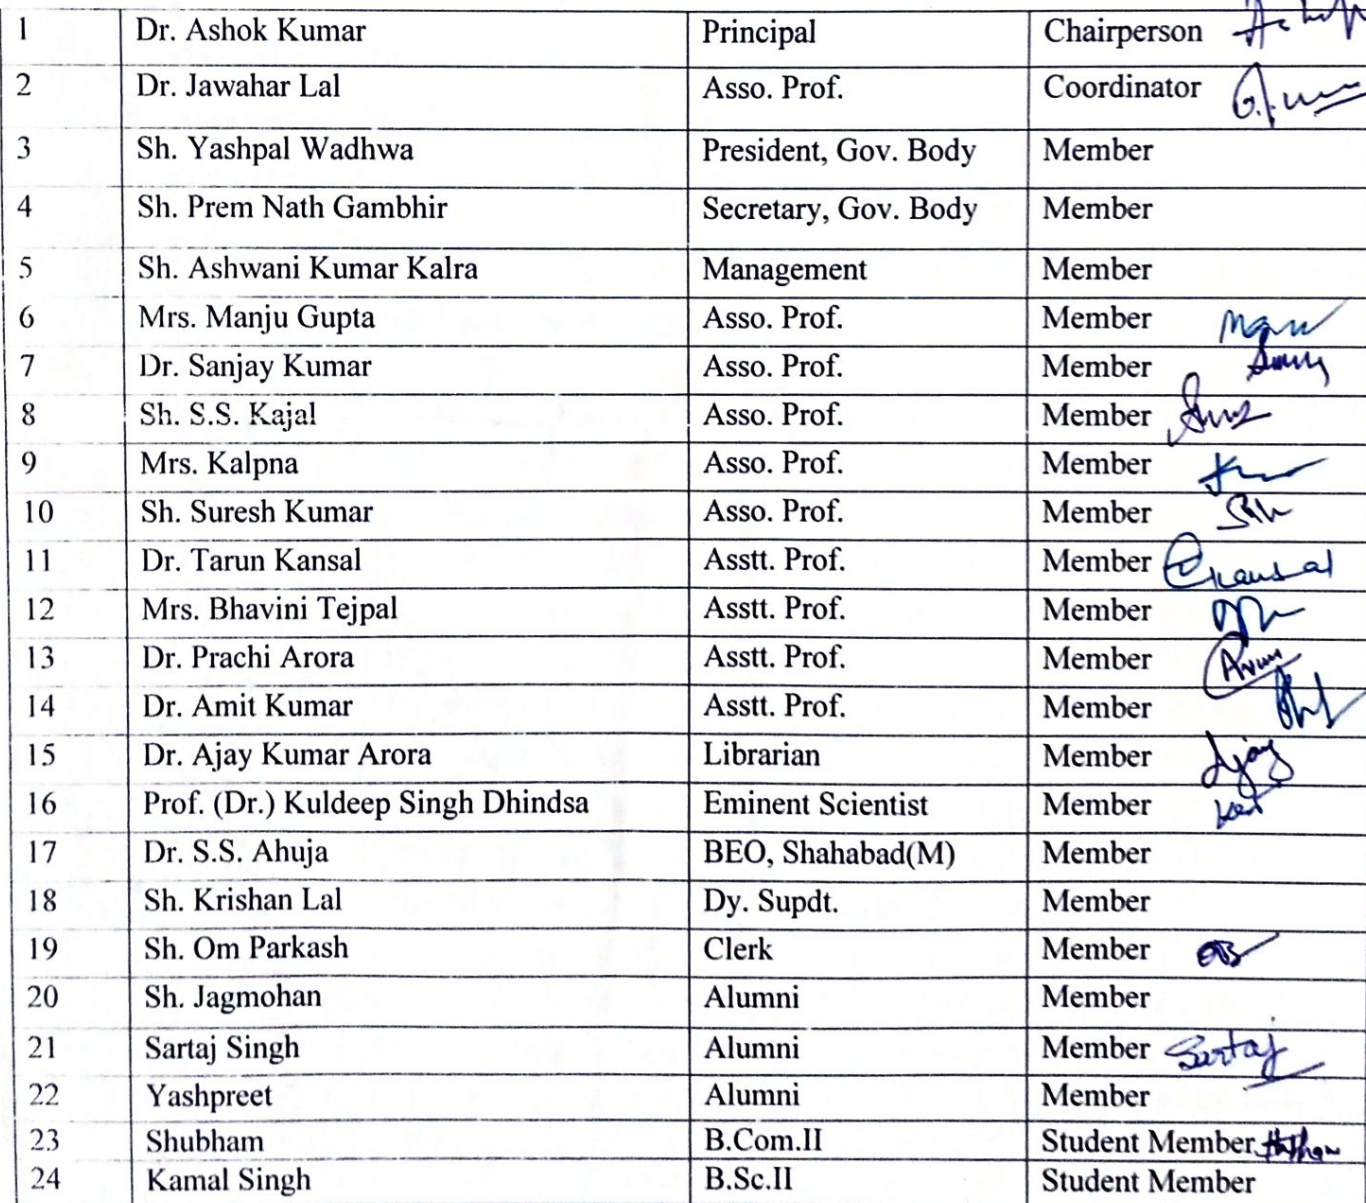 1 Dr. Ashok Kumar Principal Chairperson
2 Dr. Jawahar Lal Asso. Prof. Coordinator
3 Sh. Yashpal Wadhwa President, Gov. Body Member
4 Sh. Prem Nath Gambhir Secretary, Gov. Body Member
5 Sh. Ashwani Kumar Kalra Management Member
6 Mrs. Manju Gupta Asso. Prof. Member
7 Dr. Sanjay Kumar Asso. Prof. Member
8 Sh. S.S. Kajal Asso. Prof. Member
9 Mrs. Kalpna Asso. Prof. Member
10 Sh. Suresh Kumar Asso. Prof. Member
11 Dr. Tarun Kansal Asstt. Prof. Member
12 Mrs. Bhavini Tejpal Asstt. Prof. Member
13 Dr. Prachi Arora Asstt. Prof. Member
14 Dr. Amit Kumar Asstt. Prof. Member
15 Dr. Ajay Kumar Arora Librarian Member Ajay
16 Prof. (Dr.) Kuldeep Singh Dhindsa Eminent Scientist Member
17 Dr. S.S. Ahuja BEO, Shahabad(M) Member
18 Sh. Krishan Lal Dy. Supdt. Member
19 Sh. Om Parkash Clerk Member
20 Sh. Jagmohan Alumni Member
21 Sartaj Singh Alumni Member Sartaj
22 Yashpreet Alumni Member
23 Shubham B.Com.II Student Member
24 Kamal Singh B.Sc.II Student Member